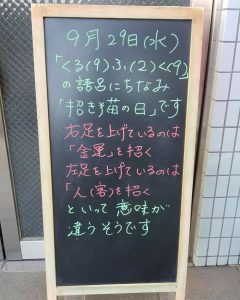 9月29日(水)
「くる(9)ふ(2)く(9)」
の語呂にちなみ
「招き猫の日」です
右足を上げているのは
「金運」を招く
左足を上げているのは
「人(客)を招く
といって意味が
違うそうです